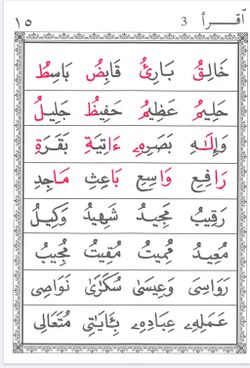 ١٥ 3 اَقْرَأْ
خَالِقُ بَارِئُ قَابِضُ بَاسِطُ
حَلِيمُ عَظِيمُ حَفِيظُ جَلِيلُ
وَإِلَٰهَ بَصَرِهِۦ ءَاتِيَة بَقَرَة
رَافِعِ وَاسِعِ بَاعِثِ مَاجِدِ
رَقِيبُ مَجِيدُ شَهِيدُ وَكِيلُ
مُعِيدُ مُمِيتُ مُقِيتُ مُجِيبُ
رَوَاسِيَ وَعِيسَىٰ سُكَٰرَىٰ نَوَاصِي
عَمَلِهِۦ عِبَادِهِۦ بِـَٔايَٰتِي مُتَعَالِي